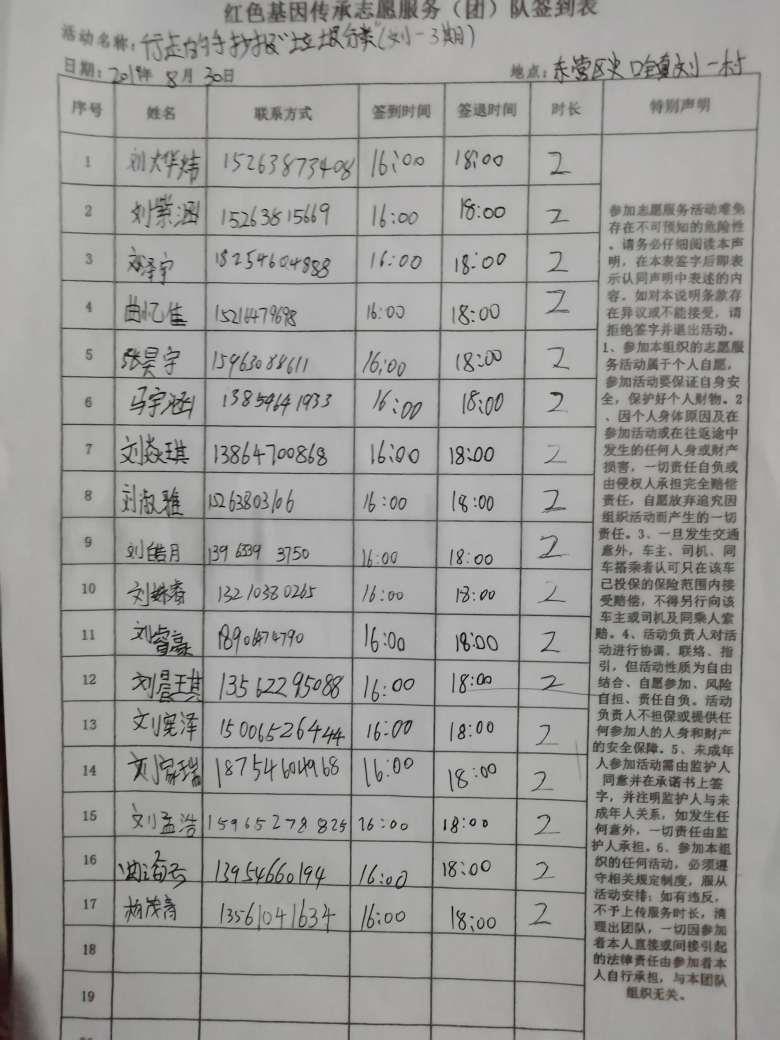 红色基因传承志愿服务（团）队签到表
活动名称：行走的手抄报“垃圾分类(刘一3期)
日期：2019年8月30日 地点：东营区史口镇刘一村
序号 姓名 联系方式 签到时间 签退时间 时长 特别声明
1 刘大华炜 15263873408 16:00 18:00 2
2 刘紫涵 15263815669 16:00 18:00 2
3 刘泽宇 18254604888 16:00 18:00 2
4 曲忆佳 15216479698 16:00 18:00 2
5 张昊宇 15963088611 16:00 18:00 2
6 马宇涵 13854641933 16:00 18:00 2
7 刘焱琪 13864700868 16:00 18:00 2
8 刘淑雅 15263803106 16:00 18:00 2
9 刘皓月 139 6339 3750 16:00 18:00 2
10 刘姝睿 13210380265 16:00 18:00 2
11 刘睿豪 18906474790 16:00 18:00 2
12 刘晨琪 13562295088 16:00 18:00 2
13 刘宪泽 15006526444 16:00 18:00 2
14 刘家瑞 18754604968 16:00 18:00 2
15 刘孟浩 15965278825 16:00 18:00 2
16 13954660194 16:00 18:00 2
17 杨茂育 13561041634 16:00 18:00 2
18
19
参加志愿服务活动难免
存在不可预知的危险性
。请务必仔细阅读本声
明，在本表签字后即表
示认同声明中表述的内
容。如对本说明条款存
在异议或不能接受，请
拒绝签字并退出活动。
1、参加本组织的志愿服
务活动属于个人自愿，
参加活动要保证自身安
全，保护好个人财物。2
、因个人身体原因及在
参加活动或在往返途中
发生的任何人身或财产
损害，一切责任自负或
由侵权人承担完全赔偿
责任，自愿放弃追究因
组织活动而产生的一切
责任。3、一旦发生交通
意外，车主、司机、同
车搭乘者认可只在该车
已投保的保险范围内接
受赔偿，不得另行向该
车主或司机及同乘人索
赔。4、活动负责人对活
动进行协调、联络、指
引，但活动性质为自由
结合、自愿参加、风险
自担、责任自负。活动
负责人不担保或提供任
何参加人的人身和财产
的安全保障。5、未成年
人参加活动需由监护人
同意并在承诺书上签
字，并注明监护人与未
成年人关系，如发生任
何意外，一切责任由监
护人承担。6、参加本组
织的任何活动，必须遵
守相关规定制度，服从
活动安排；如有违反，
不予上传服务时长，清
理出团队，一切因参加
着本人直接或间接引起
的法律责任由参加着本
人自行承担，与本团队
组织无关。